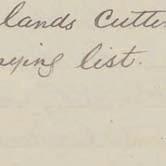 lands cutti
ying list.